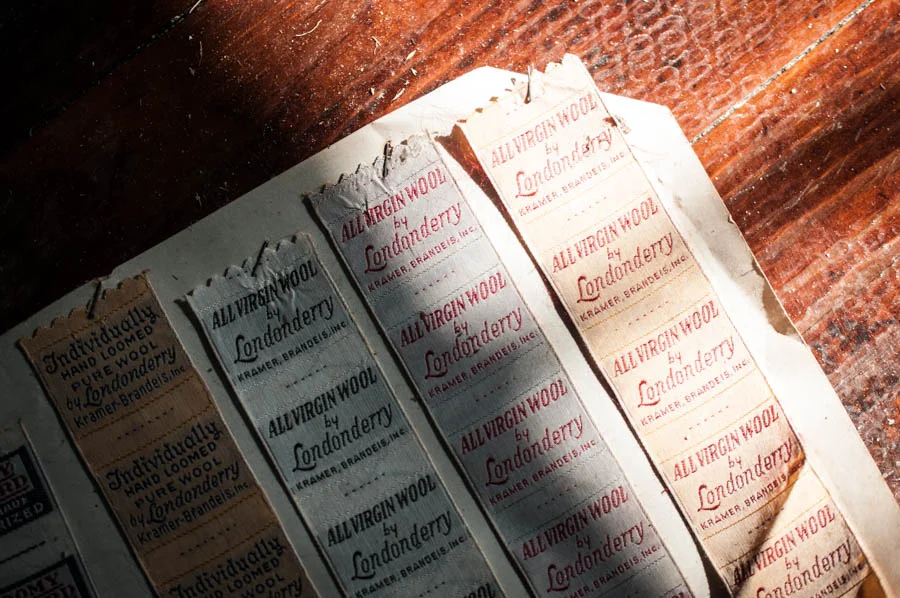 Individually
HAND LOOMED
PURE WOOL
by Londonderry
Kramer-Brandeis, Inc.
Individually
HAND LOOMED
PURE WOOL
by Londonderry
Kramer-Brandeis, Inc.
Individually
HAND LOOMED
PURE WOOL
ALL VIRGIN WOOL
by
Londonderry
KRAMER, BRANDEIS, INC.
ALL VIRGIN WOOL
by
Londonderry
KRAMER, BRANDEIS, INC.
ALL VIRGIN WOOL
by
Londonderry
KRAMER, BRANDEIS, INC.
ALL VIRGIN WOOL
by
Londonderry
KRAMER, BRANDEIS, INC.
ALL VIRGIN WOOL
by
Londonderry
KRAMER, BRANDEIS, INC.
ALL VIRGIN WOOL
by
Londonderry
KRAMER, BRANDEIS, INC.
ALL VIRGIN WOOL
by
Londonderry
KRAMER, BRANDEIS, INC.
ALL VIRGIN WOOL
by
Londonderry
KRAMER, BRANDEIS, INC.
ALL VIRGIN WOOL
by
Londonderry
KRAMER, BRANDEIS, INC.
ALL VIRGIN WOOL
by
Londonderry
KRAMER, BRANDEIS, INC.
ALL VIRGIN WOOL
by
Londonderry
KRAMER, BRANDEIS, INC.
ALL VIRGIN WOOL
by
Londonderry